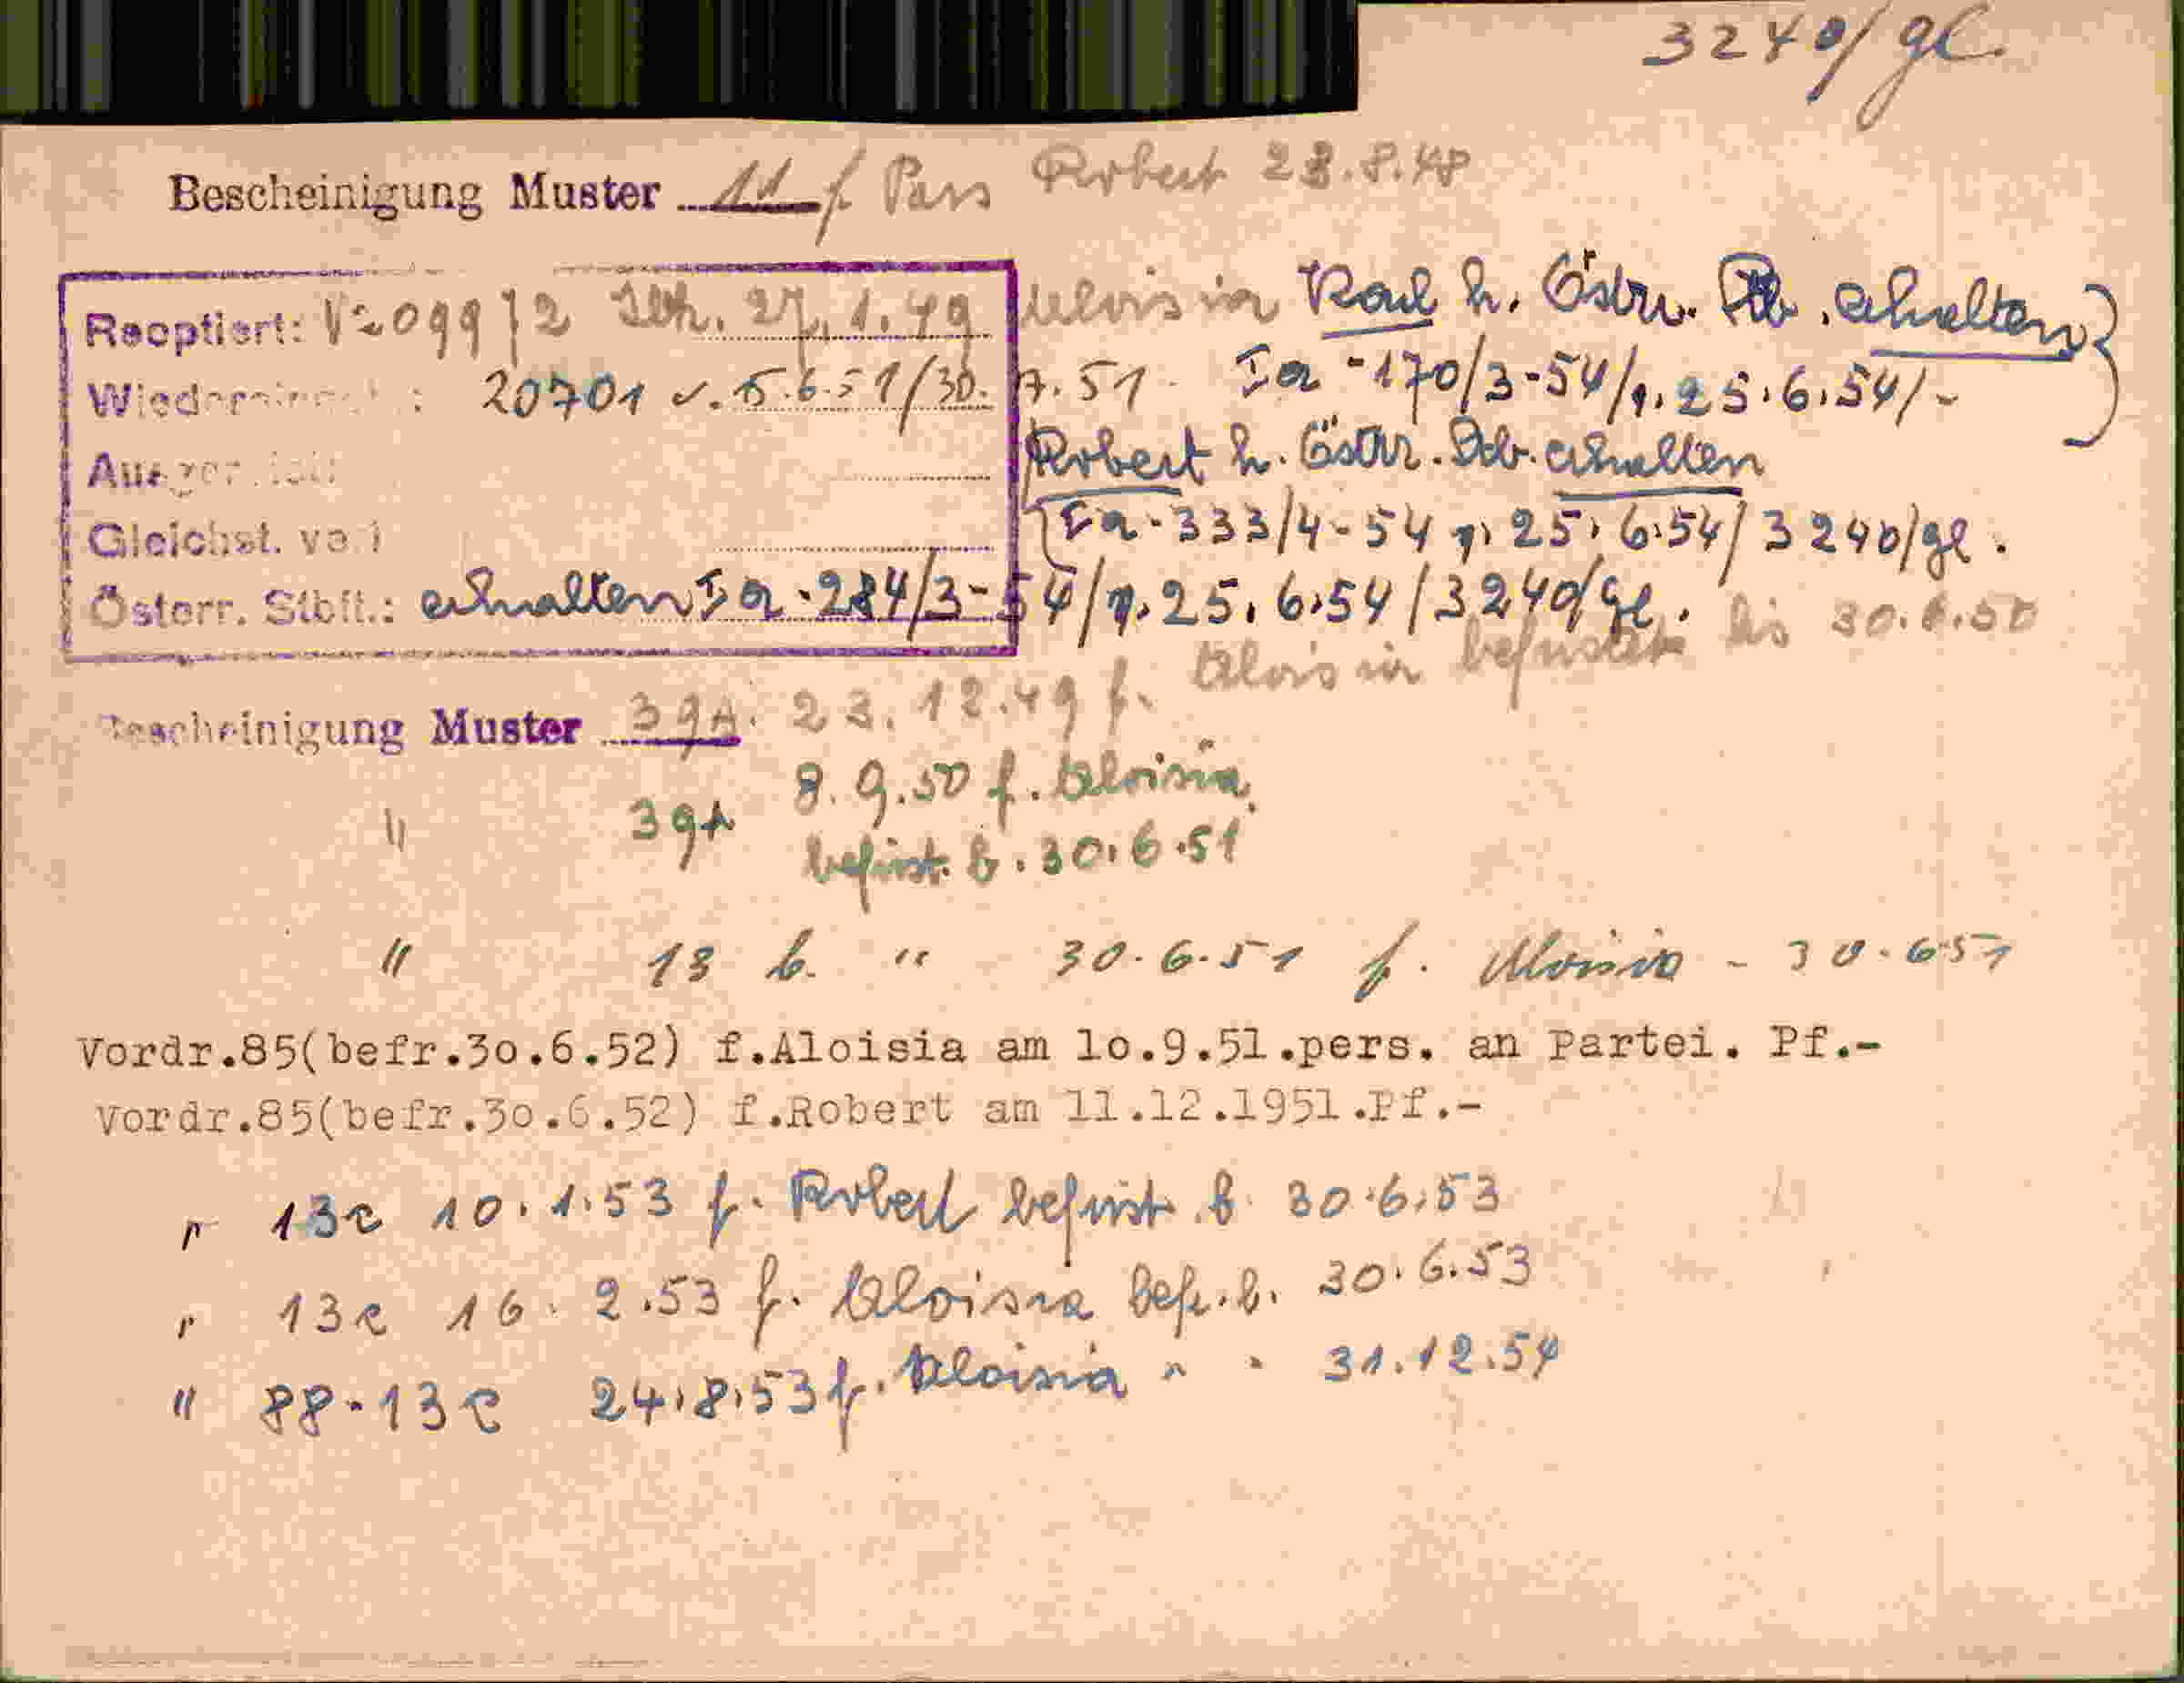 3240/gl.
Bescheinigung Muster 11 f Pass Robert 28.8.48
Reoptiert: V2099/2 27.1.49 Aloisia Karl h. Östr. Stb. erhalten
20701 v. 15.6.51/30.7.51 Ia-170/3-54/v.25.6.54/-
Robert h. Östr. Stb. erhalten
Ia-333/4-54 v. 25.6.54/3240/gl.
Gleichst.
Österr. Stbft.: erhalten Ia-284/3-54/v.25.6.54/3240/gl.
Bescheinigung Muster 39A. 23.12.49 f. Aloisia befristet bis 30.6.50
" 39A 8.9.50 f. Aloisia
befrist. b. 30.6.51
" 13 b. " 30.6.51 f. Aloisia - 30.6.51
Vordr.85(befr.3o.6.52) f.Aloisia am lo.9.51.pers. an Partei. Pf.-
Vordr.85(befr.3o.6.52) f.Robert am 11.12.1951.Pf.-
" 13c 10.1.53 f. Robert befrist. b. 30.6.53
" 13c 16.2.53 f. Aloisia befr. b. 30.6.53
" 88-13c 24.8.53 f. Aloisia " " 31.12.54